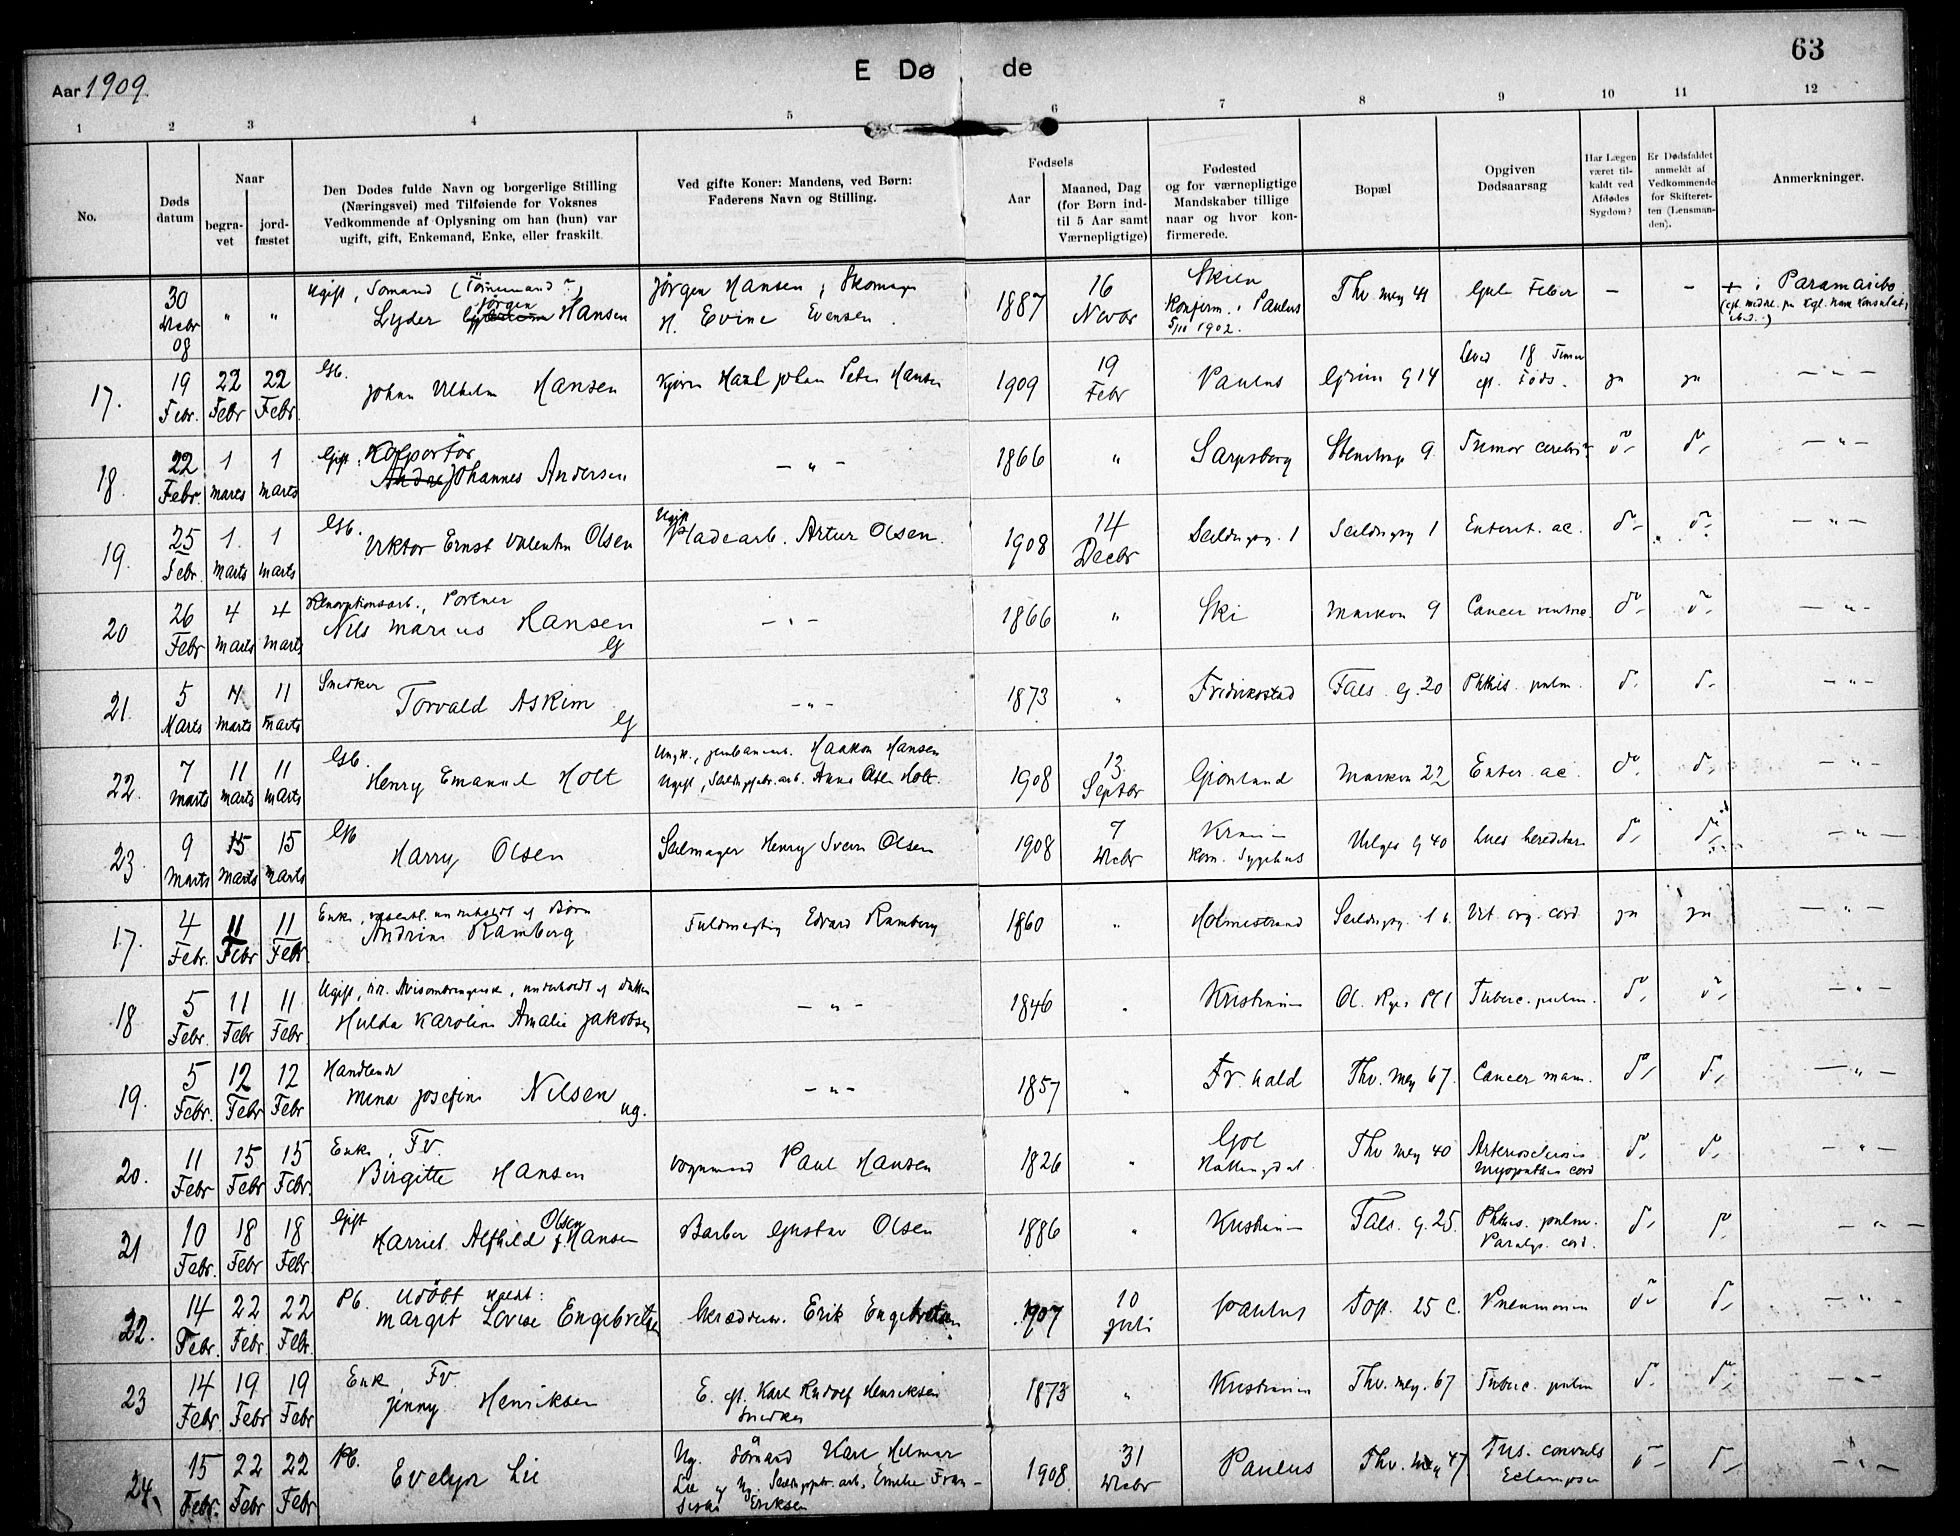 Aar 1909.
E Dø de
63
1 2 3 4 5 6 7 8 9 10 11 12
No.
Døds datum
Naar
begra- vet
jord- fæstet
Den Dødes fulde Navn og borgerlige Stilling
(Næringsvei) med Tilføiende for Voksnes
Vedkommende af Oplysning om han (hun) var
ugift, gift, Enkemand, Enke, eller fraskilt.
Ved gifte Koner: Mandens, ved Børn:
Faderens Navn og Stilling.
Fødsels
Aar
Maaned, Dag
(for Børn ind-
til 5 Aar samt
Værnepligtige)
Fødested
og for værnepligtige
Mandskaber tillige
naar og hvor kon-
firmerede.
Bopæl
Opgiven
Dødsaarsag
Har Lægen
været til-
kaldt ved
Afdødes
Sygdom?
Er Dødsfaldet
anmeldt af
Vedkommende
for Skifteret-
ten (Lensman-
den).
Anmerkninger.
30 Decbr 08 " " Ugift, Sømand (Tømmermand?) Jørgen Hansen, Skomager 1887 16 Novbr Skien Thv. mey 41 Gul Feber – – + i Paramaribo
Lyder Jørgen Hansen H. Evine Evensen. Konfirm. i Paulus 5/10 1902.
17. 19 Febr. 22 Febr 22 Febr. Gb. Johan Vilhelm Hansen Kjører Karl Johan Peter Hansen 1909 19 Febr Paulus Grün. g 14 Leved 18 Timer eft. Føds. ja ja – " –
18. 22 Febr. 1 marts 1 marts Gift. Kolportør – " – 1866 " Sarpsborg Stenstrup 9 Tumor cerebri d° d° – " –
Johannes Andersen
19. 25 Febr. 1 marts 1 marts Gb. Viktor Ernst Valentin Olsen Ugift Pladearb. Artur Olsen. 1908 14 Decbr Seildugsg. 1 Seildugsg 1 Enterit. ac. d° d° – " –
20 26 Febr 4 marts 4 marts Renovationsarb., Portner – " – 1866 " Ski Markvn 9 Cancer ventric. d° d° – " –
Nils Marius Hansen G
21. 5 Marts 11 marts 11 marts Snedker – " – 1873 " Fredrikstad Fals. g. 20 Phthis. pulm. d° d° – " –
Torvald Askim G
22. 7 marts 11 marts 11 marts Gb. Henry Emanuel Holt Ungk., jernbanearb. Haakon Hansen 1908 13 Septbr Grønland Markvn 22 Enter. ac. d° d° – " –
Ugift, Seildugsfabr. arb. Anna Olsen Holt.
23. 9 marts 15 marts 15 marts Gb Harry Olsen Seilmager Henry Svein Olsen 1908 7 Decbr Krania Kom. Sygehus Helges g 40 Lues hereditar. d° d° – " –
17. 4 Febr. 11 Febr 11 Febr. Enke, væsentl. underholdt af Børn Fuldmægtig Edvard Ramberg 1860 " Holmestrand Seildugsg. 1 Vit. org. cord ja ja – " –
Andrine Ramberg
18 5 Febr. 11 Febr 11 Febr Ugift, Avisombringerske, underholdt af – " – 1846 " Kristiania Ol. Ryes Pl 1 Tuberc. pulm. d° d° – " –
Hulda Karoline Amalie Jakobsen
19. 5 Febr. 12 Febr 12 Febr Handlende – " – 1857 " Fr.hald Thv. mey 67. Cancer mam. d° d° – " –
Mina Josefine Nilsen ug.
20. 11 Febr 15 Febr 15 Febr. Enke, Fv. Vognmand Paul Hansen 1826 " Gol Hallingdal Thv mey 40 Arteriosclerosis myopathia cord d° d° – " –
Birgitte Hansen
21 10 Febr. 18 Febr 18 Febr. Gift Harriet Alfhild Olsen f. Hansen Barber Gustav Olsen 1886 " Kristiania Fals. g. 25 Phthis. pulm. Paralys. cord. d° d° – " –
22. 14 Febr. 22 Febr. 22 Febr. Pb. Udøbt kaldt: Skrædder. Erik Engebretsen 1907 10 Juli Paulus Toft. 25 C. Pneumonia d° d° – " –
Margit Lovise Engebretsen
23 14 Febr. 19 Febr 19 Febr. Enke Fv. E. eft. Karl Rudolf Henriksen Snedker 1873 " Kristiania Thv. mey. 67 Tuberc. pulm d° d° – " –
Jenny Henriksen
24. 15 Febr. 22 Febr 22 Febr. Pb. Evelyn Lie Ug. Sømand Karl Hilmar 1908 31 Decbr Paulus Thv. mey 47 Tus. convuls Eclampsia d° d° – " –
Lie og Ug. Seildugsfabr. arb. Emilie Fran-
siska Eriksen